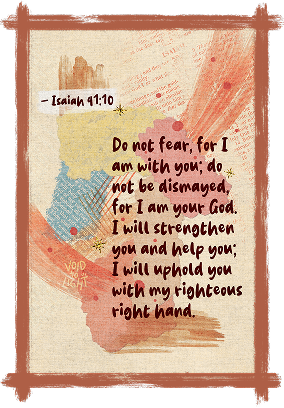 – Isaiah 41:10
Do not fear, for I
am with you; do
not be dismayed,
for I am your God.
I will strengthen
you and help you;
I will uphold you
with my righteous
right hand.
VOID
LIGHT